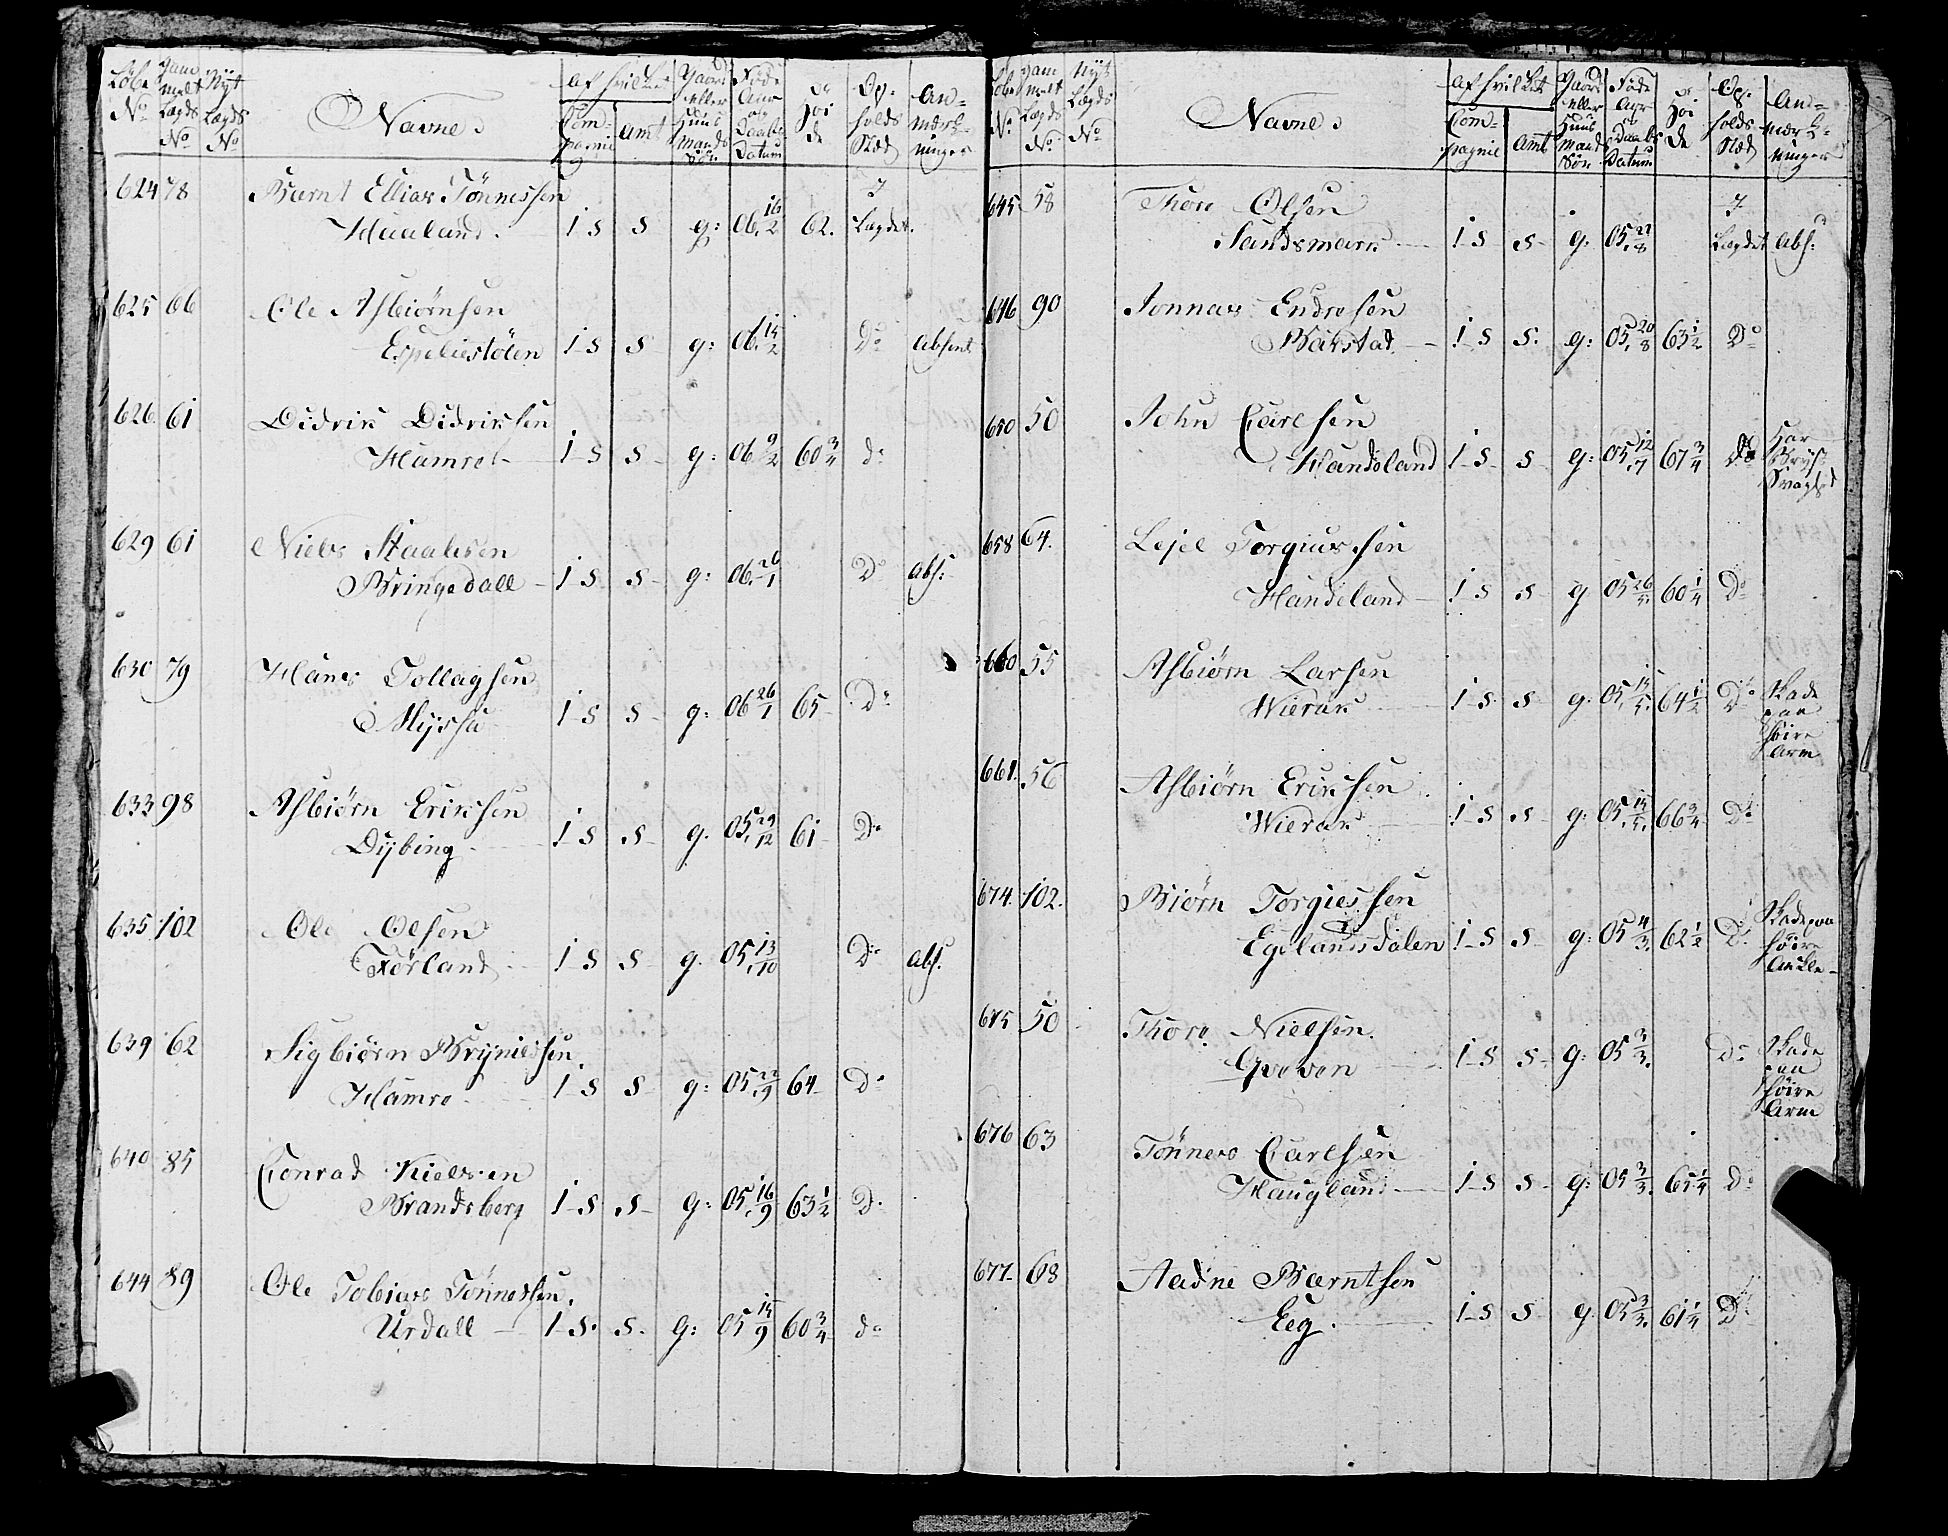 Løbe No
Gammelt Lægds No
Nyt Lægds No
Navne
af hvilket
Compagnie
Amt
Gaard eller Huus Mands Søn
Føde Aar og Daabs Datum
Høide
Opholds Stæd
Anmærkninger
624 78 Bærnt Ellias Tønnessen i
Haaland. 1 S S g: 06. 16/2 62. Lægdet.
625 66 Ole Asbiørnsen
Espeliestølen 1 S S g: 06. 15/2 Do absent
626 61 Didrik Didriksen
Hamre 1 S S g: 06 9/2 60 3/4 do
629 61 Niels Staalesen
Bringedall 1 S S g: 06. 26/1 Do abs:
630 79 Hans Tollagsen
Myssa 1 S S g: 06 26/1 65 Do
633 98 Asbiørn Eriksen
Dybing 1 S S g. 05. 29/12 61 Do
635 102 Ole Olsen
Førland 1 S S g. 05. 13/10 Do abs.
639 62 Sigbiørn Brynielsen
Hamre 1 S S g: 05. 22/9 64 Do
640 85 Conrad Nielsen
Brandsberg 1 S S g: 05. 16/9 63 1/2 Do
644 89 Ole Tobias Tønnessen.
Urdall 1 S. S. g: 05 15/9 60 3/4 do
Løbe No
Gammelt Lægds No
Nyt Lægds No
Navne
af hvilket
Compagnie
Amt
Gaard eller Huus Mands Søn
Føde Aar og Daabs Datum
Høide
Opholds Stæd
Anmærkninger
645 58 Thore Olsen i
Sandsmark 1 S S g: 05. 27/8 Lægdet abs:
646 90 Jonnas Endresen
Bakstad 1 S S. g: 05. 20/8 63 1/2 Do
650 50 John Carlsen
Handeland 1 S S g: 05. 12/7 67 3/4 Do Har Bryst Svaghed
658 64. Lejel Torgiussen
Handeland 1 S S g 05 26/5. 60 1/4 Do
660 55 Asbiørn Larsen
Wierak 1 S S g. 05. 15/5. 64 1/2 Do Skade paa høire Arm
661. 56 Asbiørn Eriksen
Wierak 1 S S g: 05. 15/5. 66 3/4 Do
674. 102. Biørn Torgiessen
Egelandsdalen 1 S S g: 05 4/3. 62 1/2 Do Skade paa høire Anckle
675 50 Thore Nielsen.
1 S S g: 05 3/3. Do Skade paa høire Arm
676 63 Tønnes Carlsen
Haugland 1 S S g: 05 3/3. 65 1/4 do
677. 68 Aadne Bærntsen
Eeg. 1 S S g. 05 3/3. 61 1/4 Do